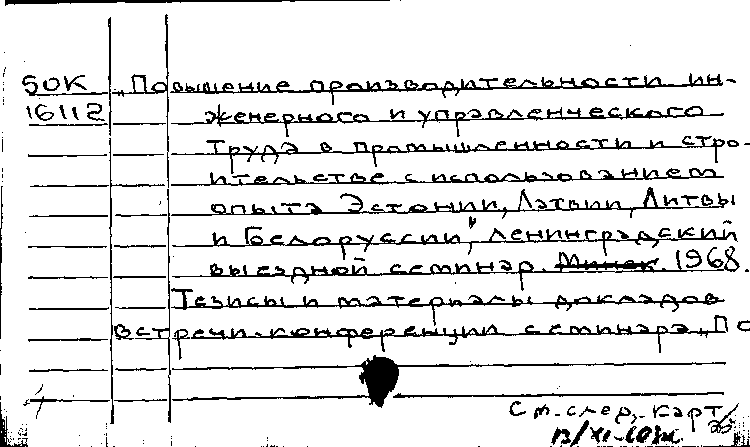 50К „Повышение производительности ин-
16112 женерного и управленческого
труда в промышленности и стро-
ительстве с использованием
опыта Эстонии, Латвии, Литвы
и Белоруссии", Ленинградский
выездной семинар. Минск. 1968.
Тезисы и материалы докладов
встречи-конференции семинара „По
См. след. карт